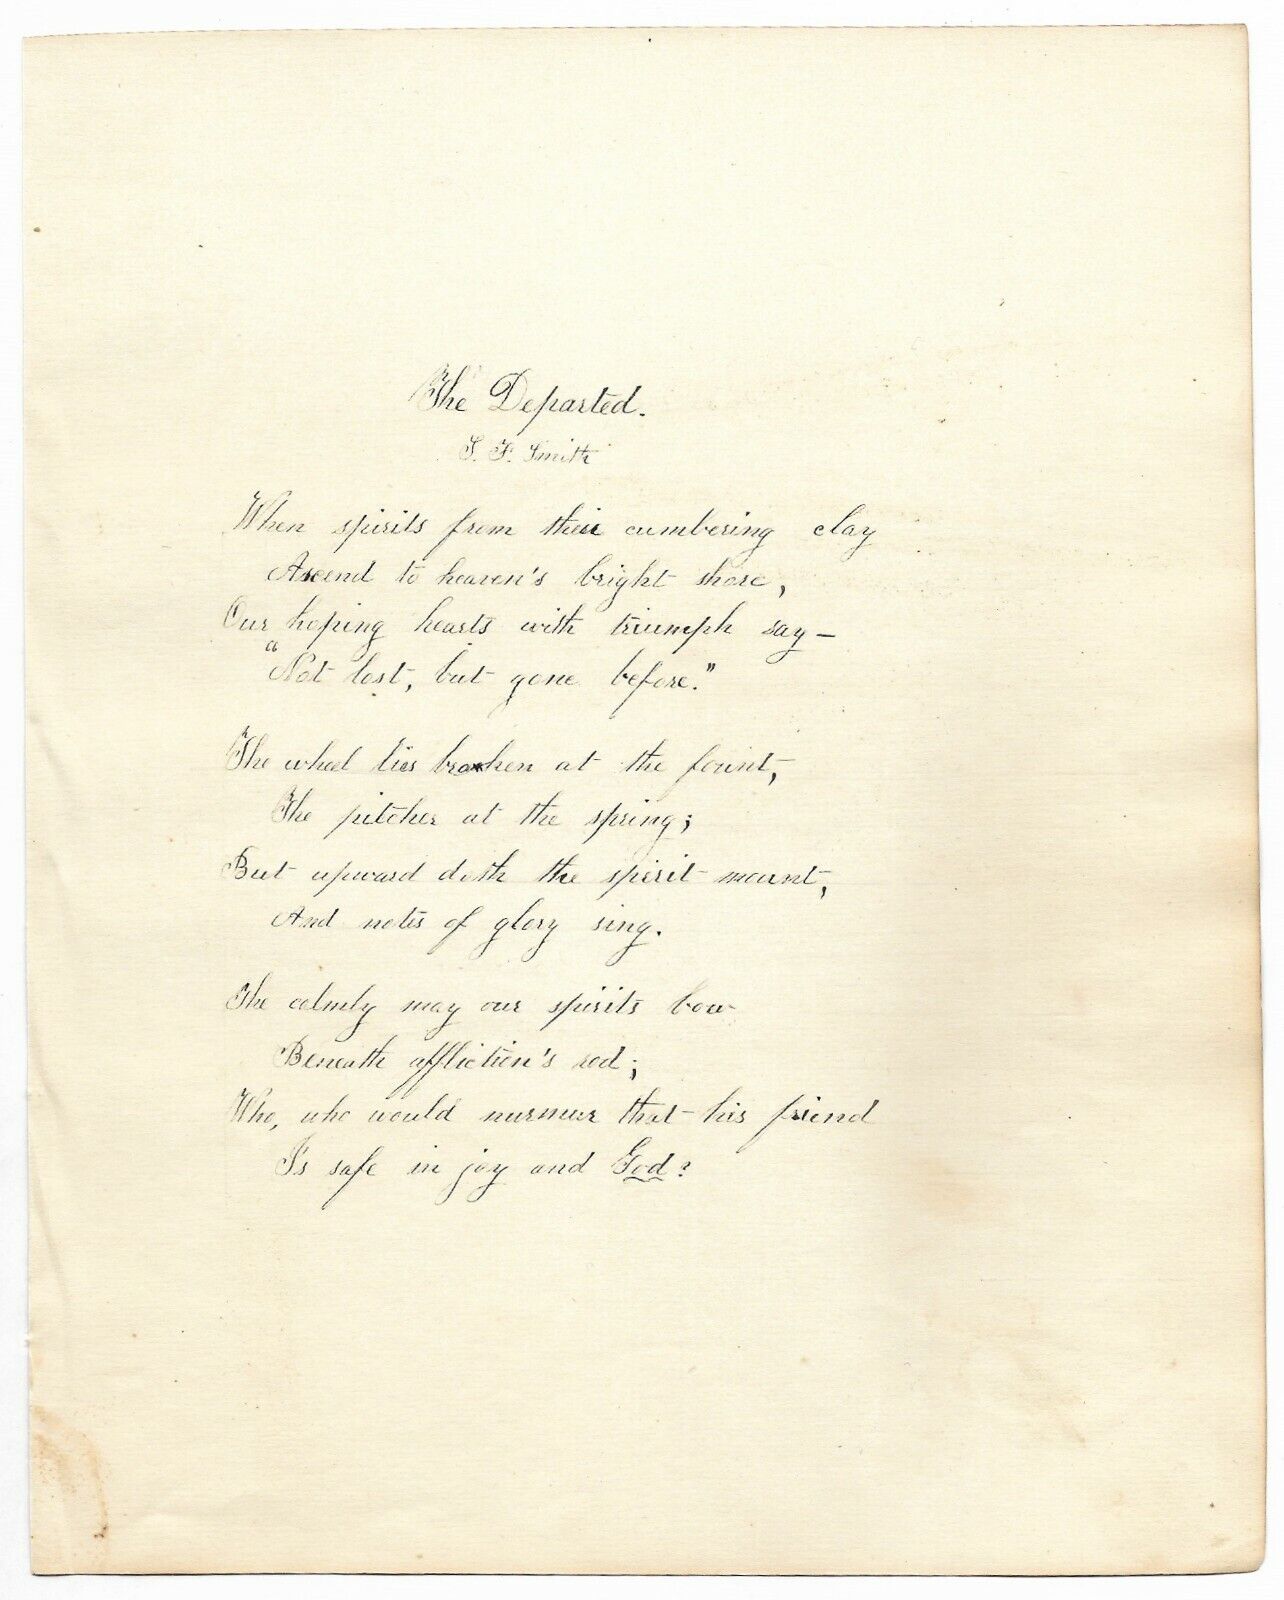 The Departed.
S. F. Smith
When spirits from their cumbering clay
Ascend to heaven's bright shore,
Our hoping hearts with triumph say —
"Not lost, but gone before."
The wheel lies broken at the fount,
The pitcher at the spring;
But upward doth the spirit mount,
And notes of glory sing.
The calmly may our spirits bow
Beneath affliction's rod;
Who, who would murmur that his friend
Is safe in joy and God?